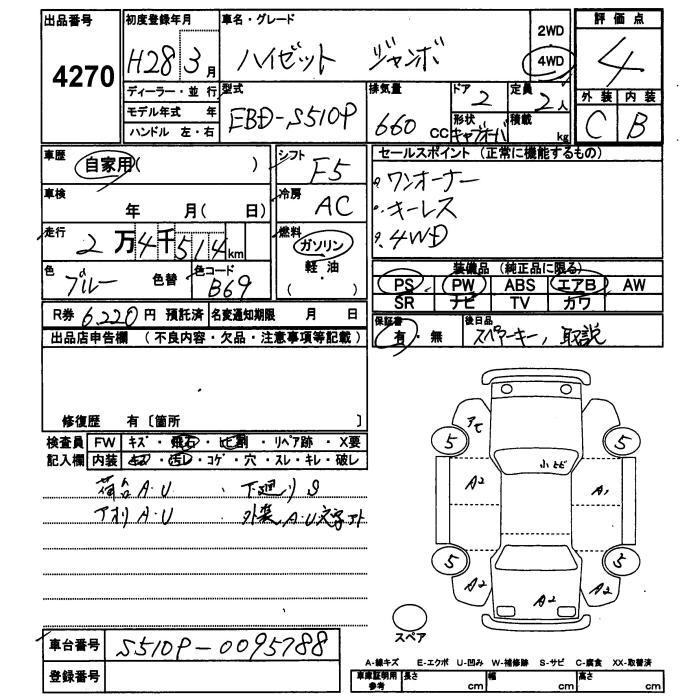 出品番号
4270
初度登録年月
H28 3月
車名・グレード
ハイゼット ジャンボ
2WD
4WD
評価点
4
外装 内装
C B
ディーラー・並行
モデル年式 年
ハンドル 左・右
型式
EBD-S510P
排気量
660 CC
ドア 2
形状
キャブオーバ
定員
2人
積載
kg
車歴
自家用( )
シフト
F5
セールスポイント (正常に機能するもの)
ワンオーナー
キーレス
4WD
車検
年 月( 日)
冷房
AC
走行
2万4千514km
燃料
ガソリン
軽・油
( )
色
ブルー
色替
色コード
B69
装備品 (純正品に限る)
PS PW ABS エアB AW
SR ナビ TV カワ
R券 6,220円 預託済
名変通知期限 月 日
保証書
有・無
後日品
スペアーキー, 取説
出品店申告欄 (不良内容・欠品・注意事項等記載)
修復歴 有〔箇所 〕
検査員 FW キズ・飛石・ヒビ割・リペア跡・X要
記入欄 内装 キズ・汚レ・コゲ・穴・スレ・キレ・破レ
荷台A・U ・下廻りS
アオリA・U ・外装A・U文字アト
アセ
5 5
小ヒビ
A2 A1
5 5
A2 A2 A2
スペア
車台番号 S510P-0095788
登録番号
A-線キズ E-エクボ U-凹み W-補修跡 S-サビ C-腐食 XX-取替済
車庫証明用
参考
長さ cm 幅 cm 高さ cm